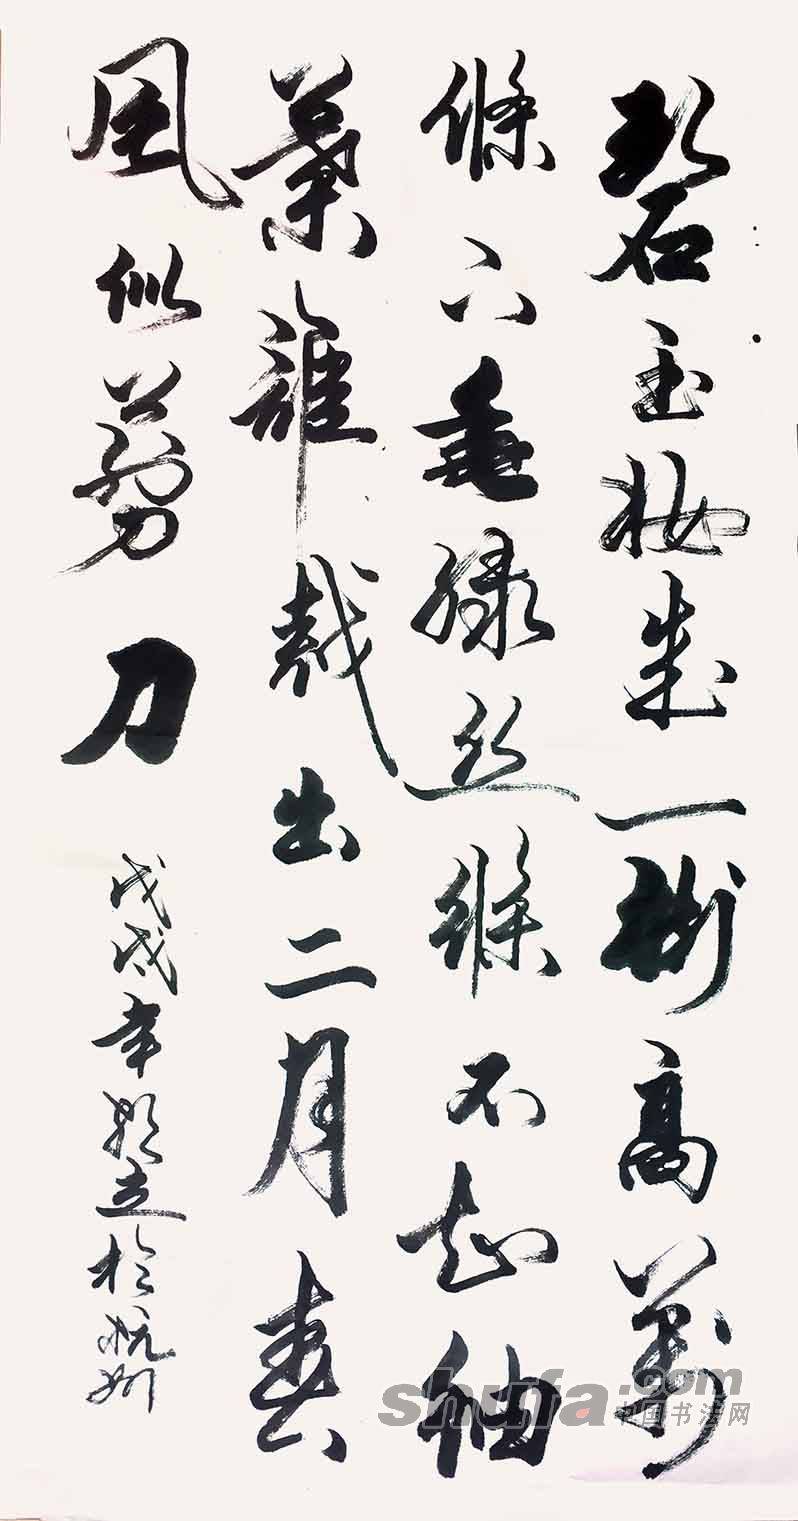 碧玉妝成一樹高萬
條下垂綠絲絛不知細
葉誰裁出二月春
風似剪刀
戊戌年立於杭州
shufa.com
中国书法网